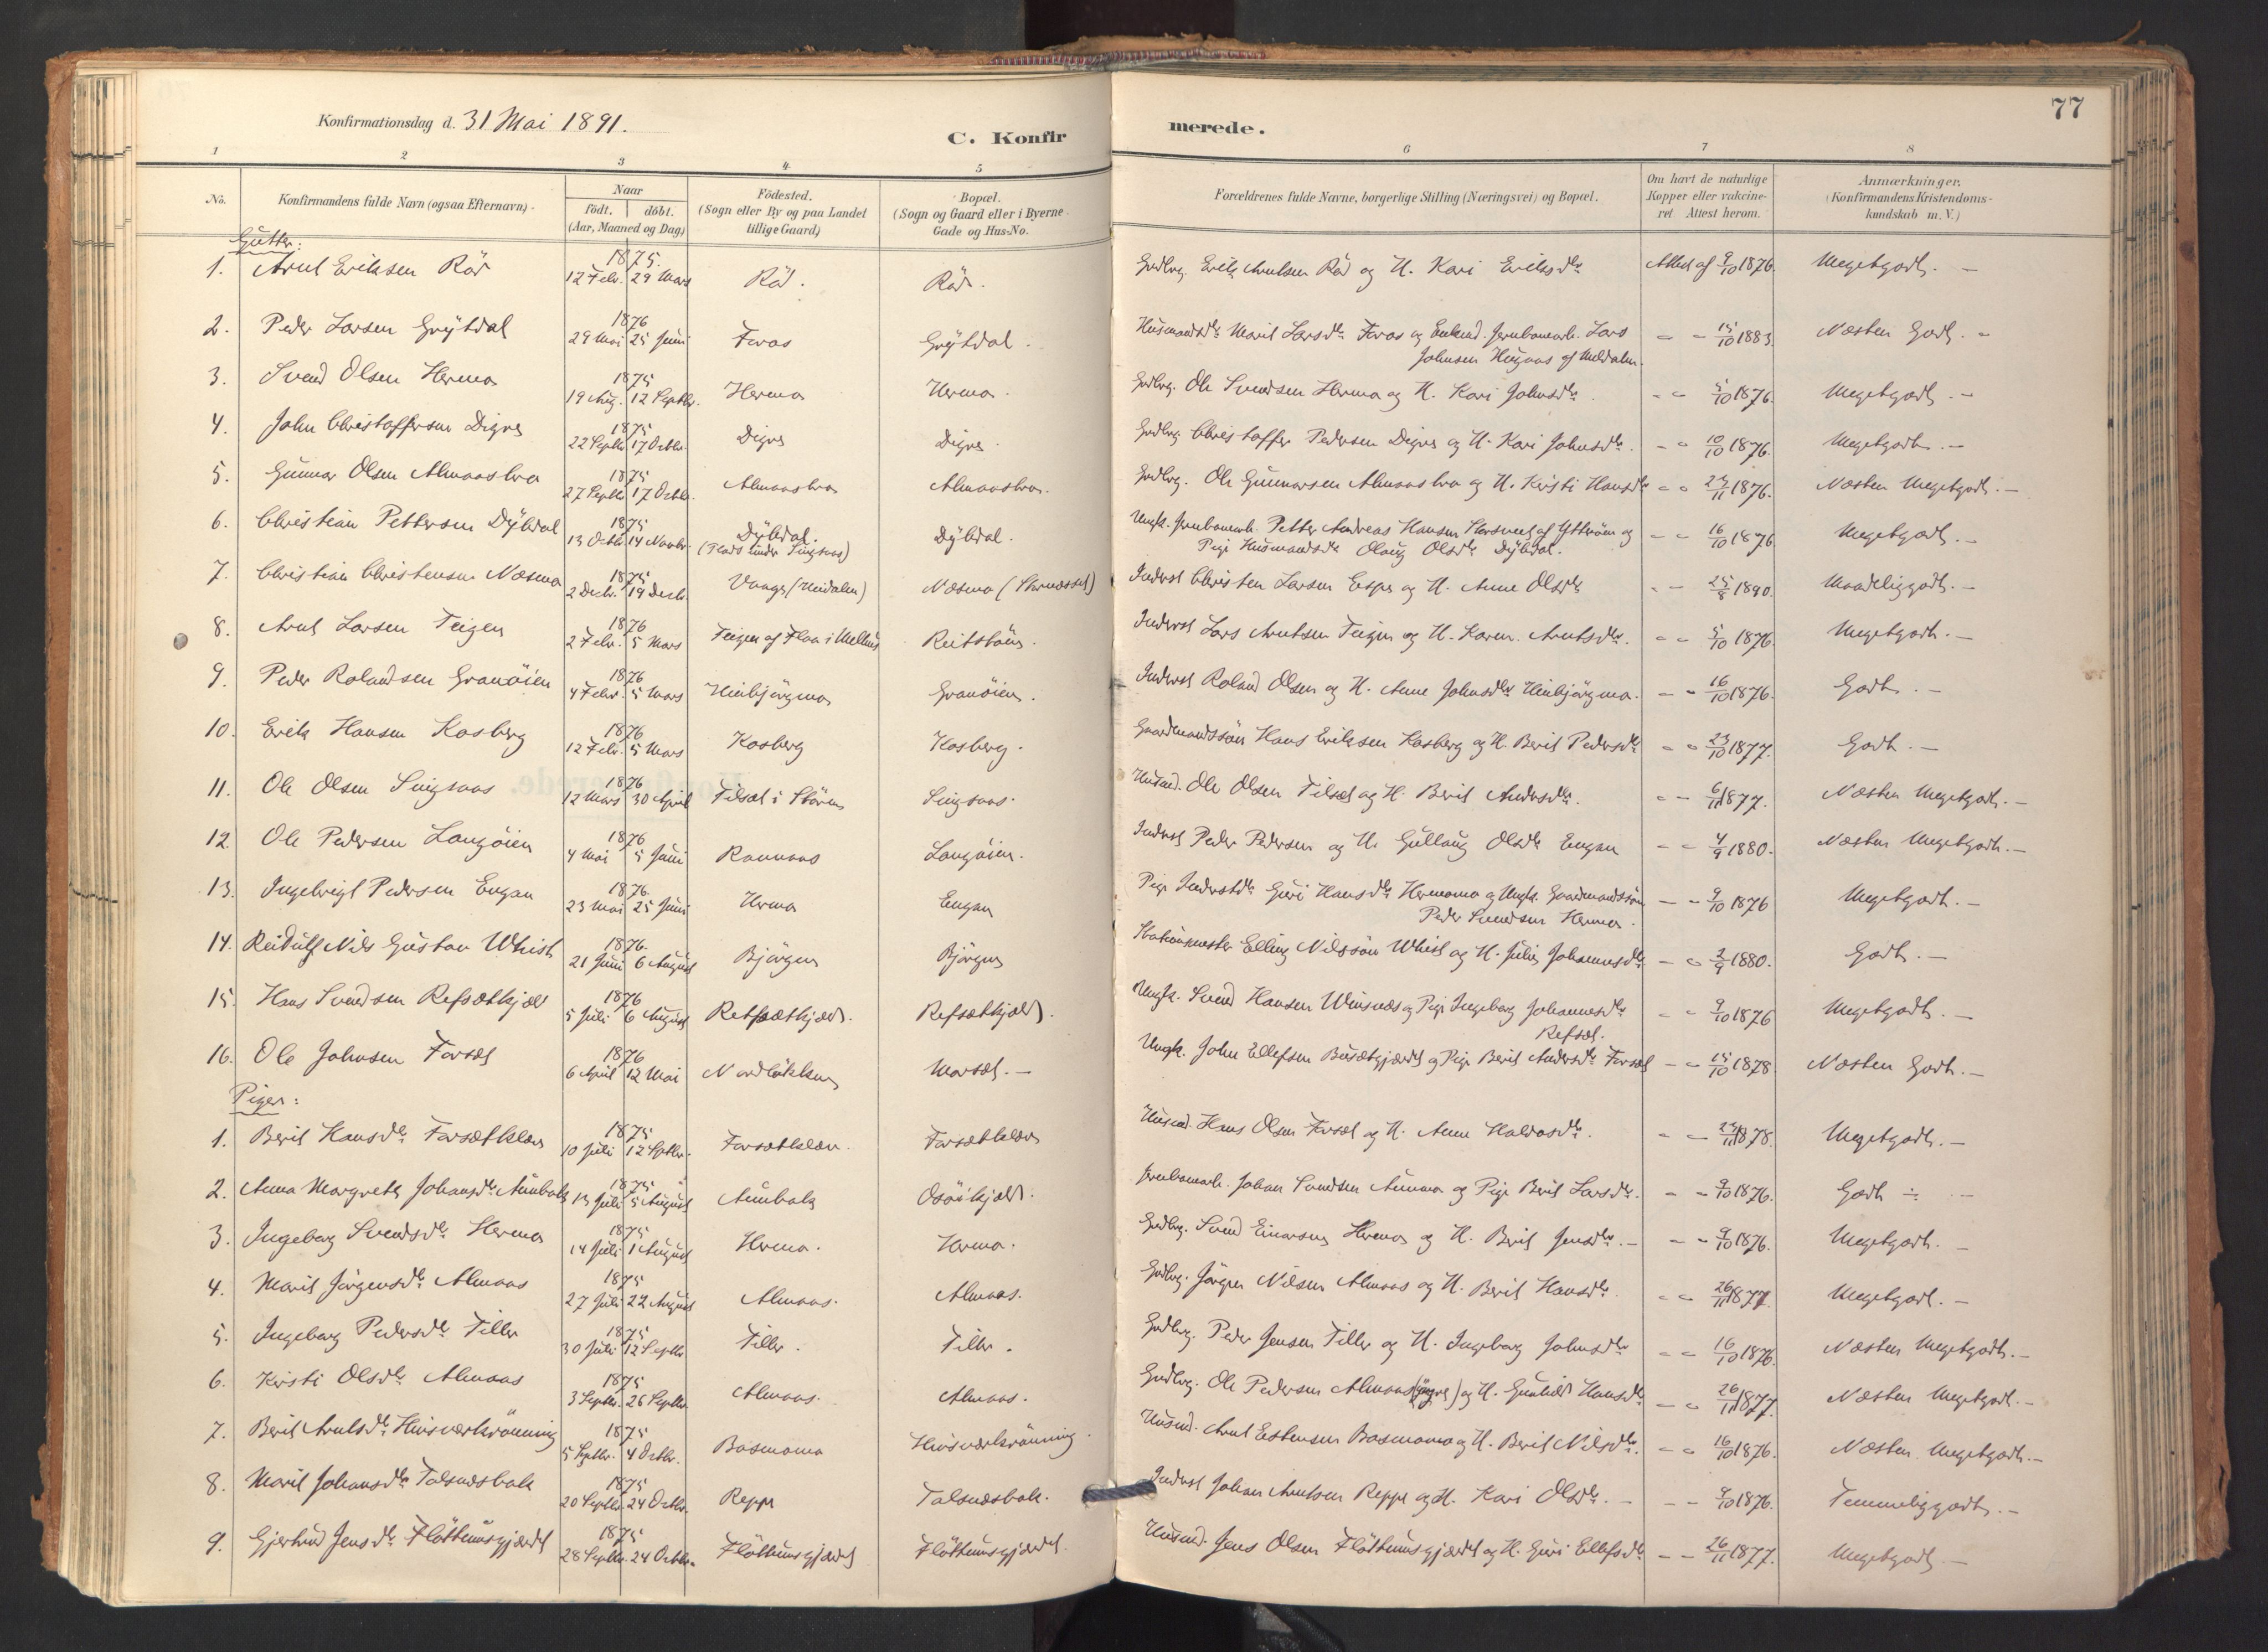 77
Konfirmationsdag d. 31 Mai 1891.
C. Konfirmerede.
1 2 3 4 5 6 7 8
No. Konfirmandens fulde Navn (ogsaa Efternavn). Naar födt. döbt. (Aar, Maaned og Dag) Födested. (Sogn eller By og paa Landet tillige Gaard) Bopæl. (Sogn og Gaard eller i Byerne Gade og Hus-No. Forældrenes fulde Navne, borgerlige Stilling (Næringsvei) og Bopæl. Om havt de naturlige Kopper eller vakcineret Attest herom. Anmærkninger. (Konfirmandens Kristendomskundskab m. V.)
Gutter:
1. Arnt Eriksen Röd 1875. 12 Febr. 29 Mars Röd. Röd. Gdbrg. Erik Arntsen Röd og H. Kari Eriksdtr Attest af 9/10 1876. Megetgodt. -
2. Peder Larsen Grytdal 1876 29 Mai 25 Juni Foros Grytdal. Husmandsdtr Marit Larsdtr Foros og Enkemd. Jernbanearb. Lars
Johnsen Hugaas af Meldalen. - - 15/10 1883. Næsten Godt. -
3. Svend Olsen Hermo 1875 19 Aug. 12 Septbr. Hermo Hermo. Gdbrg. Ole Svendsen Hermo og H. Kari Johnsdtr. - - 5/10 1876. Megetgodt. -
4. John Christoffersen Digres 1875 22 Septbr. 17 Octbr. Digres Digres. Gdbrg. Christoffer Pedersen Digres og H. Kari Johnsdtr. - - 10/10 1876. Megetgodt. -
5. Gunnar Olsen Almaasbro 1875 27 Septbr. 17 Octbr. Almaasbro Almaasbro. Gdbrg. Ole Gunnarsen Almaasbro og H. Kristi Hansdtr - - 24/11 1876. Næsten Megetgodt. -
6. Christian Pettersen Dybdal 1875 13 Octbr. 14 Novbr. Dybdal. (Plads under Singsaas) Dybdal. Ungk. Jernbanearb. Petter Andreas Hansen af Ytteröen og
Pige Husmandsdtr Olaug Olsdtr Dybdal. - - 16/10 1876 Megetgodt. -
7. Christian Christensen Næsmo 1875 2 Decbr. 19 Decbr. Vange (Uvdalen) Næsmo Inderst Christen Larsen Espes og H. Anne Olsdtr - - 25/8 1890. Maadeliggodt. -
8. Arnt Larsen Teigen 1876 2 Febr. 5 Mars Teigen af Flaa i Melhus Reitstöen. Inderst Lars Arntsen Teigen og H. Karen Arntsdtr. - - 5/10 1876. Megetgodt. -
9. Peder Rolandsen Granöien 1876 4 Febr. 5 Mars Heinbjörgmo Granöien. Inderst Roland Olsen og H. Anne Johnsdtr Heinbjörgmo. - - 16/10 1876. Godt. -
10. Erik Hansen Kosberg 1876 12 Febr. 5 Mars Kosberg Kosberg. Gaardmandssön Hans Eriksen Kosberg og H. Berit Pedersdtr - - 23/10 1877. Godt. -
11. Ole Olsen Singsaas 1876 12 Mars 30 April Tilsæt i Stören Singsaas. Husmd. Ole Olsen Tilsæt og H. Berit Andersdtr. - - 6/11 1877. Næsten Megetgodt. -
12. Ole Pedersen Langöien 1876 4 Mai 5 Juni Ramaas Langöien. Inderst Peder Pedersen og H. Gullaug Olsdtr Engan - - 4/9 1880. Næsten Megetgodt. -
13. Ingebrigt Pedersen Engan 1876. 23 Mai 25 Juni Hermo Engan Pige Inderstdtr Guri Hansdtr Hermomo og Ungk. Gaardmandssön
Peder Svendsen Hermo. - - 9/10 1876 Megetgodt. -
14. Reidulf Nils Gustav Whist 1876. 21 Juni 6 August Björgen Björgen Stationsmester Elling Nilssön Whist og H. Julie Johannesdtr - - 2/9 1880. Godt. -
15. Hans Svendsen Refsætkjæld 1876 5 Juli 6 August Refsætkjæld. Refsætkjæld. Ungk. Svend Hansen Winsnæs og Pige Ingeborg Johannesdtr
Refsæt. - - 9/10 1876 Megetgodt. -
16. Ole Johnsen Forsæt 1876 6 April 12 Mai Nordlökken Morsæt. - Ungk. John Ellefsen Busætgjærdet og Pige Berit Andersdtr Forsæt - - 15/10 1878 Næsten Godt. -
Piger:
1. Berit Hansdtr Forsætkleven 1875 10 Juli 12 Septbr. Forsætkleven. Forsætkleven Husmd. Hans Olsen Forsæt og H. Anne Haldosdtr. - - 24/11 1878. Megetgodt. -
2. Anna Margrete Johansdtr Aunbak 1875 13 Juli 5 August Aunbak Osöikjeld. Jernbanearb. Johan Svendsen Aunmo og Pige Berit Larsdtr. - - 9/10 1876. Godt -
3. Ingeborg Svendsdtr Hermo 1875 14 Juli 1 August Hermo. Hermo. Gdbrg. Svend Einarsen Hermo og H. Berit Jensdtr. - - - 9/10 1876. Megetgodt. -
4. Marit Jörgensdtr Almaas 1875 27 Juli 22 August Almaas. Almaas. Gdbrg. Jörgen Nilsen Almaas og H. Berit Hansdtr. - - 26/11 1877. Megetgodt. -
5. Ingeborg Pedersdtr Tiller 1875 30 Juli 12 Septbr Tiller. Tiller. Gdbrg. Peder Jensen Tiller og H. Ingeborg Johnsdtr - - 16/10 1876. Næsten Megetgodt. -
6. Kristi Olsdtr Almaas 1875 3 Septbr. 26 Septbr. Almaas. Almaas. Gdbrg. Ole Pedersen Almaas og H. Gunhild Hansdtr - - 26/11 1877. Næsten Megetgodt. -
7. Berit Arntsdtr Husværkrönning 1875 5 Septbr. 4 Octbr. Bosmomo Husværkrönning. Husmd. Arnt Estensen Bosmomo og H. Berit Nilsdtr. - - 16/10 1876. Næsten Megetgodt. -
8. Marit Johansdtr Talsnæsbak 1875 20 Septbr. 24 Octbr. Reppe Talsnæsbak. Inderst Johan Arntsen Reppe og H. Kari Olsdtr. - - - 9/10 1876. Temmeliggodt. -
9. Gjertrud Jensdtr Flöttumsgjærdet 1875 28 Septbr. 24 Octbr. Flöttumsgjærdet Flöttumsgjærdet. Husmd. Jens Olsen Flöttumsgjærdet og H. Guri Ellefsdtr - - 26/11 1877. Megetgodt. -